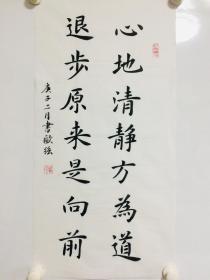 心地清静方為道
退步原来是向前
庚子二月書